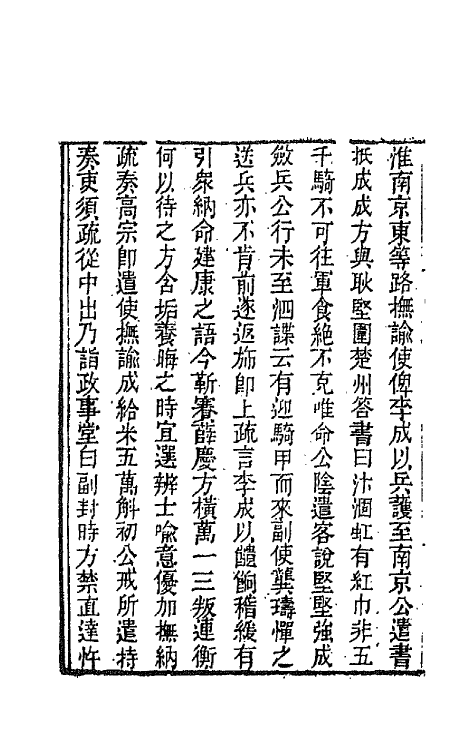 淮南京東等路撫諭使俾李成以兵護至南京公遣書
抵成成方與耿堅圍楚州答書曰汴涸虹有紅巾非五
千騎不可往軍食絕不克唯命公陰遣客說堅堅強成
斂兵公行未至泗諜云有迎騎甲而來副使龔璹憚之
送兵亦不肯前遂返斾即上疏言李成以饋餉稽緩有
引衆納命建康之語今靳賽薛慶方橫萬一三叛連衡
何以待之方含垢養晦之時宜選辨士喻意優加撫納
疏奏高宗即遣使撫諭成給米五萬斛初公戒所遣持
奏吏須疏從中出乃詣政事堂白副封時方禁直達忤